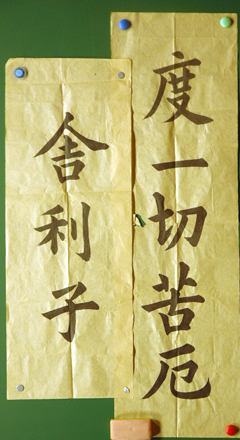 度一切苦厄
舍利子